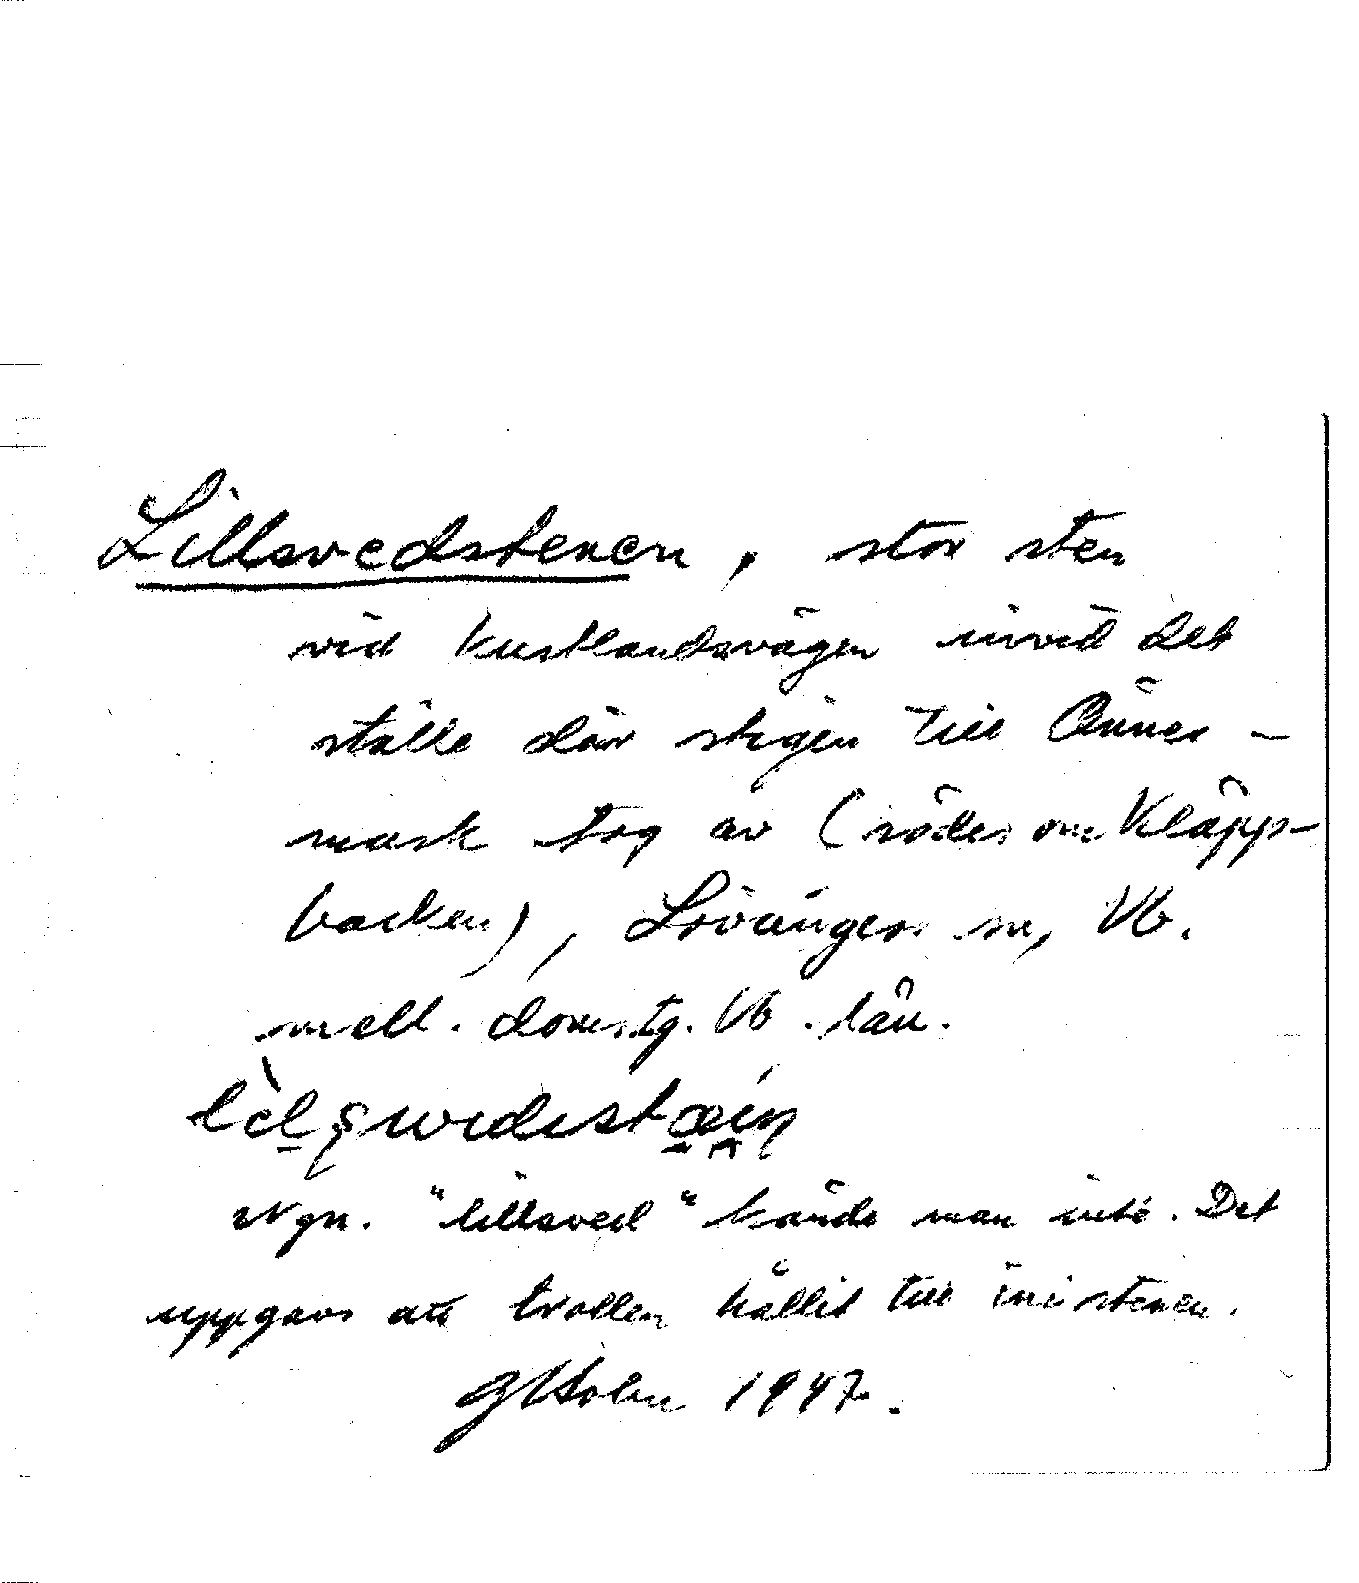 Lillsvedstenen, stor sten
vid kustlandsvägen invid det
ställe där stigen till Önnes-
mark tog av (söder om Kläpp-
backen), Lövångers sn, Vb.
mell. doms.tg. Vb. län.
Ngn. "lillsved" kände man inte. Det
uppgavs att trollen hållit till ini stenen.
GHolm 1947.